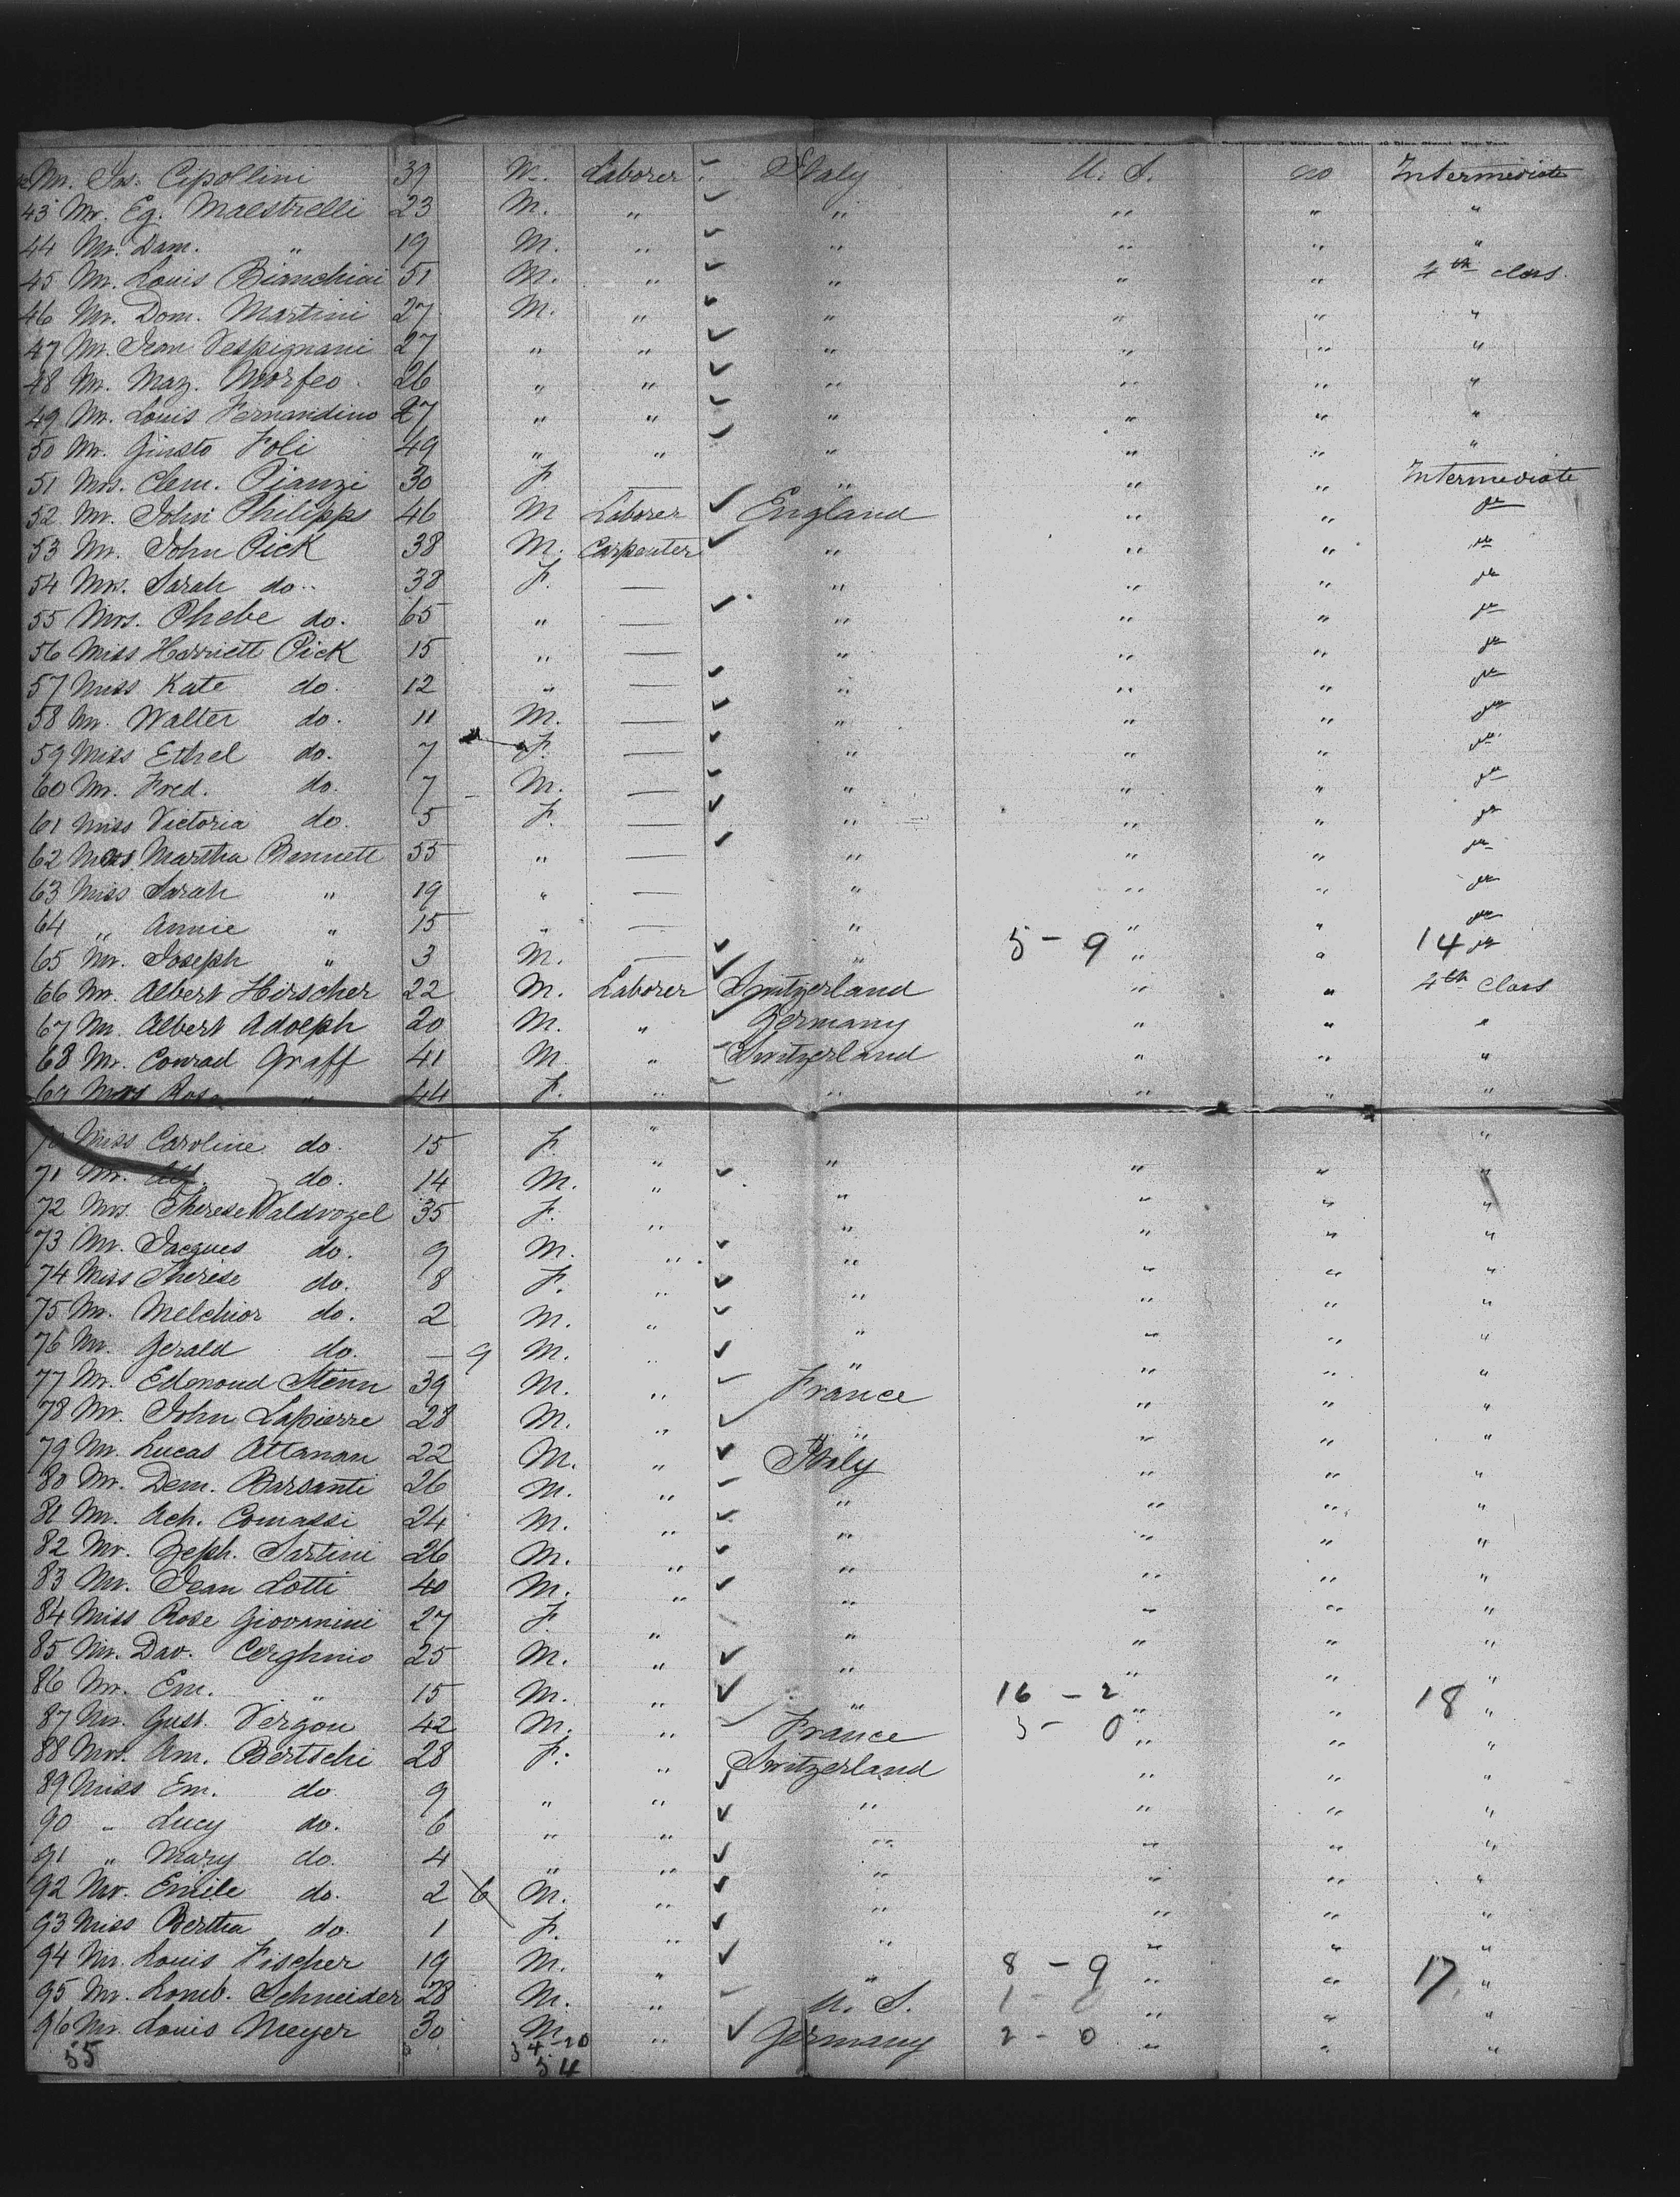 Mr. Jos. Cipollini 39 M. Laborer Italy U. S. no Intermediate
43 Mr. Eg. Maestrelli 23 M. " " " " "
44 Mr. Dam. " 19 M. " " " " "
45 Mr. Louis Bianchini 51 M. " " " " 4th class
46 Mr. Dom. Martini 27 M. " " " " "
47 Mr. Jean Vespignani 27 " " " " " "
48 Mr. Maz. Morfeo 26 " " " " " "
49 Mr. Louis Fernandino 27 " " " " " "
50 Mr. Giusto Foli 49 " " " " " "
51 Mrs. Clem. Pianzi 30 F. — " " " Intermediate
52 Mr. John Philipps 46 M Laborer England " "
53 Mr. John Pick 38 M. Carpenter " " "
54 Mrs. Sarah do. 38 F. — " " "
55 Mrs. Phebe do. 65 " — " " "
56 Miss Harriett Pick 15 " — " " "
57 Miss Kate do. 12 " — " " "
58 Mr. Walter do. 11 M. — " " "
59 Miss Ethel do. 7 F. — " " "
60 Mr. Fred. do. 7 M. — " " "
61 Miss Victoria do. 5 F. — " " "
62 Martha Bannett 55 " — " " "
63 Miss Sarah " 19 " — " " "
64 " Annie " 15 " — " " "
65 Mr. Joseph " 3 M. — " 5 - 9 " " 14
66 Mr. Albert Hirscher 22 M. Laborer Switzerland " " 4th class
67 Mr. Albert Adolph 20 M. " Germany " " "
68 Mr. Conrad Graff 41 M " Switzerland " " "
69 Rosa " 44 F. " " " " "
70 Miss Caroline do. 15 F. " " " " "
71 Mr. Alf. do. 14 M. " " " " "
72 Mrs. Therese Waldvogel 35 F. " " " " "
73 Mr. Jacques do. 9 M. " " " " "
74 Miss Therese do. 8 F. " " " " "
75 Mr. Melchior do. 2 M. " " " " "
76 Mr. Gerald do. — 9 M. " " " " "
77 Mr. Edmond Stenn 39 M. " France " " "
78 Mr. John Lapierre 28 M. " " " " "
79 Mr. Lucas Attanan 22 M. " Italy " " "
80 Mr. Dem. Barsanti 26 M. " " " " "
81 Mr. Ach. Comassi 24 M. " " " " "
82 Mr. Zeph. Sartini 26 M. " " " " "
83 Mr. Jean Lotti 40 M. " " " " "
84 Miss Rose Giovanini 27 F. " " " " "
85 Mr. Dav. Cerghnio 25 M. " " " " "
86 Mr. Em. " 15 M. " " 16 - 2 " " 18 "
87 Mr. Gust. Vergon 42 M. " France 3 - 0 " " "
88 Mrs. Am. Bertschi 28 F. " Switzerland " " "
89 Miss Em. do 9 " " " " " "
90 " Lucy do. 6 " " " " " "
91 " Mary do. 4 " " " " " "
92 Mr. Emile do. 2 6 M. " " " " "
93 Miss Bertha do. 1 F. " " " " "
94 Mr. Louis Fischer 19 M. " " 8 - 9 " " 17 "
95 Mr. Lomb. Schneider 28 M. " U. S. 1 - 0 " " "
96 Mr. Louis Meyer 30 M. " Germany 2 - 0 " " "
55 34-20
54